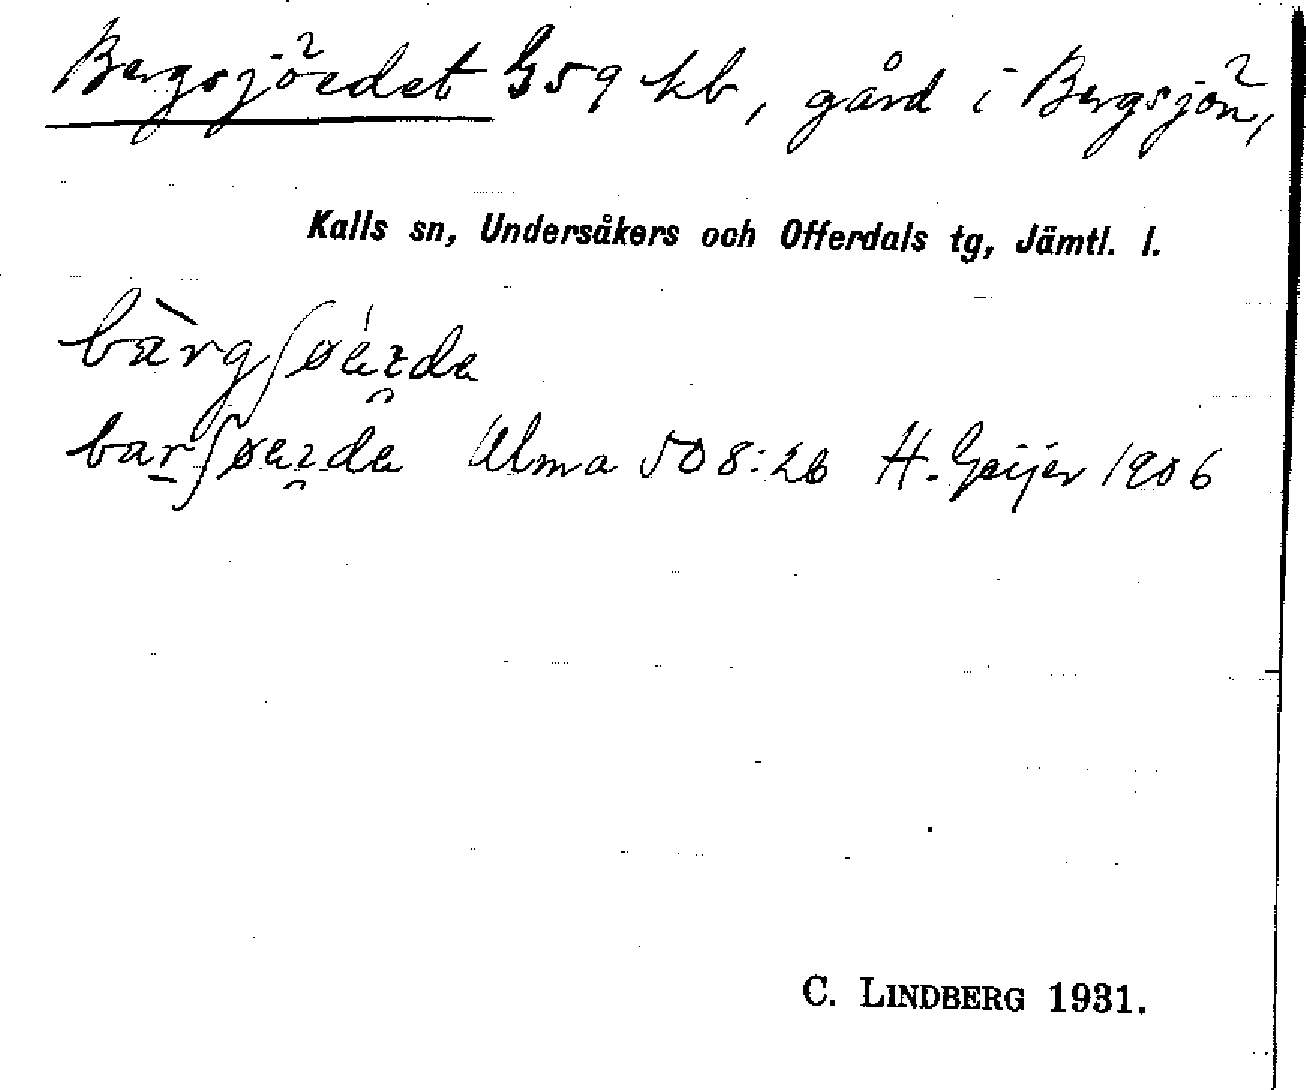 Bergsjöedet G59 kb, gård i Bergsjön,
Kalls sn, Undersåkers och Offerdals tg, Jämtl. l.
bàrgʃøázda
barʃøazda Ulma 508:26 H. Geijer 1906
C. LINDBERG 1931.